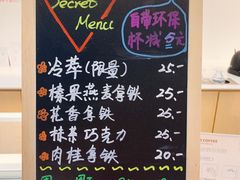 Secret
Menu
自带环保
杯减5元
冷萃(限量) 25.-
榛果燕麦拿铁 25.-
花香拿铁 25.-
抹茶巧克力 25.-
肉桂拿铁 20.-